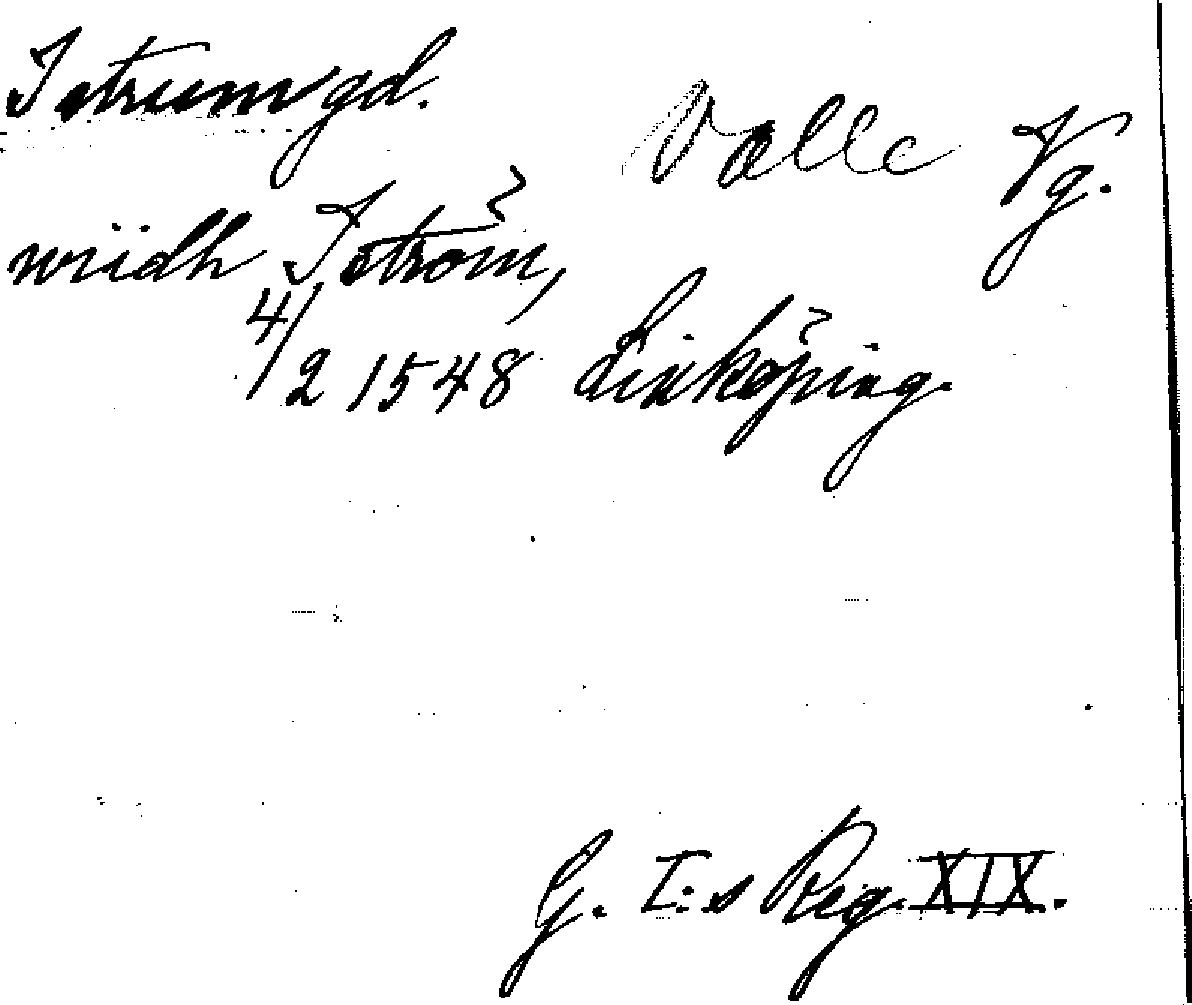 Istrum gd. Valle Vg.
wiidh Iström,
4/2 1548 Linköping.
G. I:s Reg. XIX.